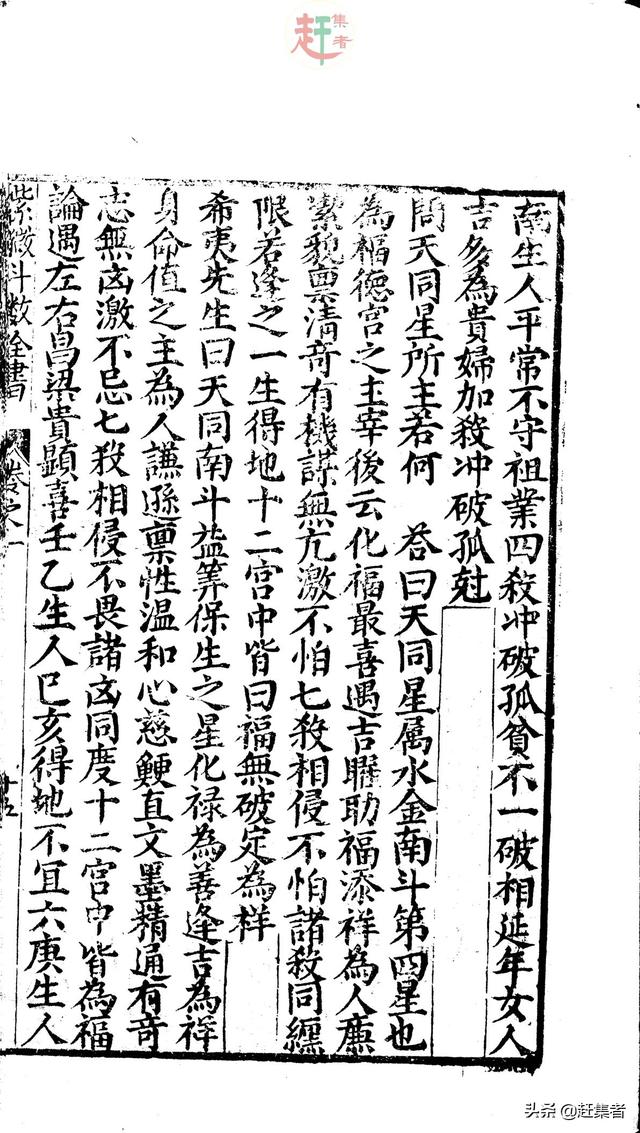 赶集者
南生人平常不守祖業四殺冲破孤貧不一破相延年女人
吉多為貴婦加殺冲破孤尅
問天同星所主若何　荅曰天同星属水金南斗第四星也
為福德宮之主宰後云化福最喜遇吉曜助福添祥為人廉
潔貌禀清奇有機謀無亢激不怕七殺相侵不怕諸殺同纏
限若逢之一生得地十二宮中皆曰福無破定為祥
希夷先生曰天同南斗益筭保生之星化禄為善逢吉為祥
身命值之主為人謙遜禀性温和心慈鯁直文墨精通有奇
志無凶激不忌七殺相侵不畏諸凶同度十二宮中皆為福
論遇左右昌梁貴顯喜壬乙生人巳亥得地不宜六庚生人
紫微斗数全書　卷之一　十五
头条 @赶集者